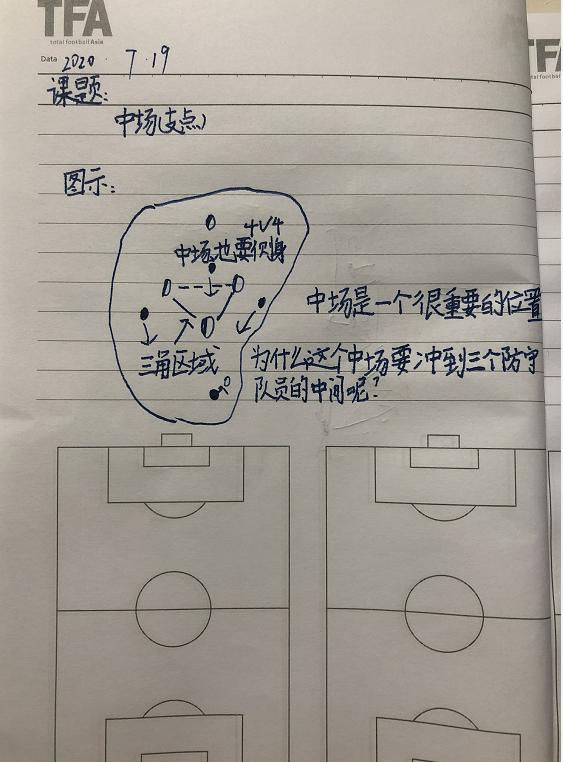 TFA
total football Asia
Data 2020 · 7.19
课题:
中场(支点)
图示:
4V4
中场也要侧身
中场是一个很重要的位置
三角区域
为什么这个中场要冲到三个防守
队员的中间呢?
TF
total foot